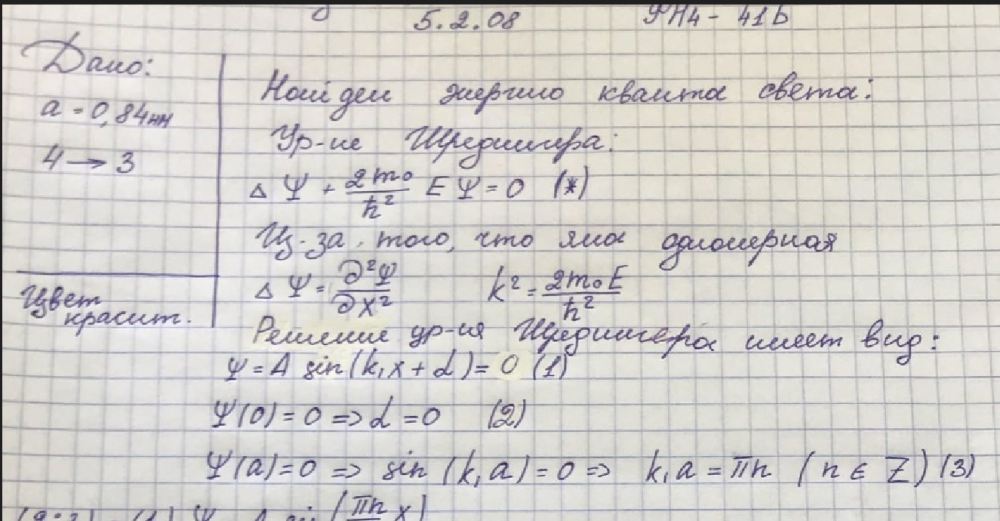 5.2.08 РЛ4-41Б
Дано:
a = 0,84нм
4 → 3
Цвет
красит.
Найдем энергию кванта света:
Ур-ие Шредингера:
Δ Ψ + 2m₀/ħ² E Ψ = 0 (*)
Из-за того, что яма одномерная
Δ Ψ = ∂²Ψ/∂x² k² = 2m₀E/ħ²
Решение ур-ия Шредингера имеет вид:
Ψ = A sin(k₁x + α) = 0 (1)
Ψ(0) = 0 => α = 0 (2)
Ψ(a) = 0 => sin (k₁a) = 0 => k₁a = πn (n ∈ Z) (3)